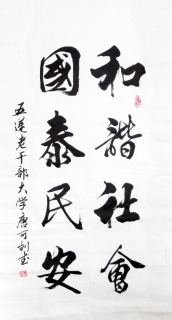 和諧社會
國泰民安
五蓮老干部大学唐可利书